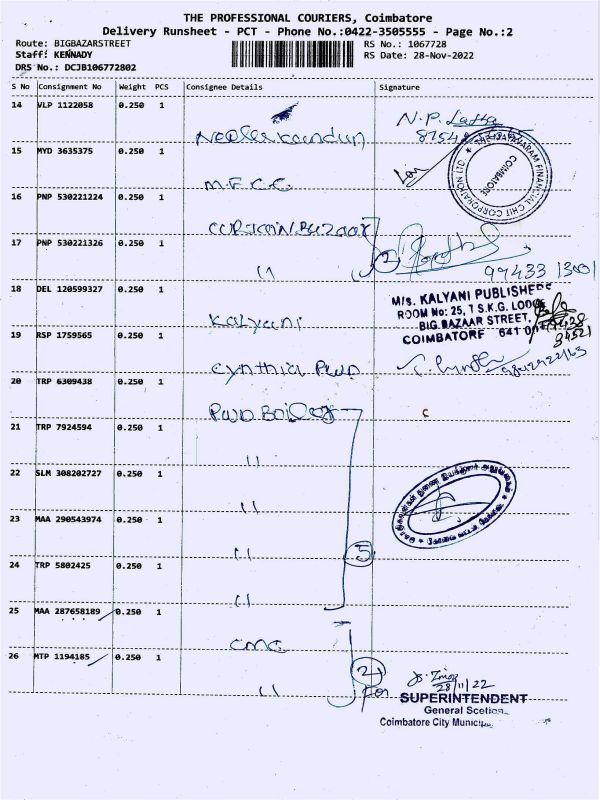 THE PROFESSIONAL COURIERS, Coimbatore
Delivery Runsheet - PCT - Phone No.:0422-3505555 - Page No.:2
Route: BIGBAZARSTREET
RS No.: 1067728
Staff: KENNADY
RS Date: 28-Nov-2022
DRS No.: DCJB106772802
S No Consignment No Weight PCS Consignee Details Signature
14 VLP 1122058 0.250 1
N.P. Latha
15 MYD 3635375 0.250 1
M.F.C.C.
FINANCIAL CHIT CORPORATION LTD. COIMBATORE
16 PNP 530221224 0.250 1
17 PNP 530221326 0.250 1
2
99433 13001
18 DEL 120599327 0.250 1
Kalyani
M/s. KALYANI PUBLISHERS
ROOM No: 25, T S.K.G. LODGE
BIG BAZAAR STREET,
COIMBATORE 641 001
19 RSP 1759565 0.250 1
Cynthia PWD
20 TRP 6309438 0.250 1
21 TRP 7924594 0.250 1
22 SLM 308202727 0.250 1
23 MAA 290543974 0.250 1
5
24 TRP 5802425 0.250 1
25 MAA 287658189 0.250 1
CMC
26 MTP 1194185 0.250 1
2
28/11/22
SUPERINTENDENT
General Scetion
Coimbatore City Municipa